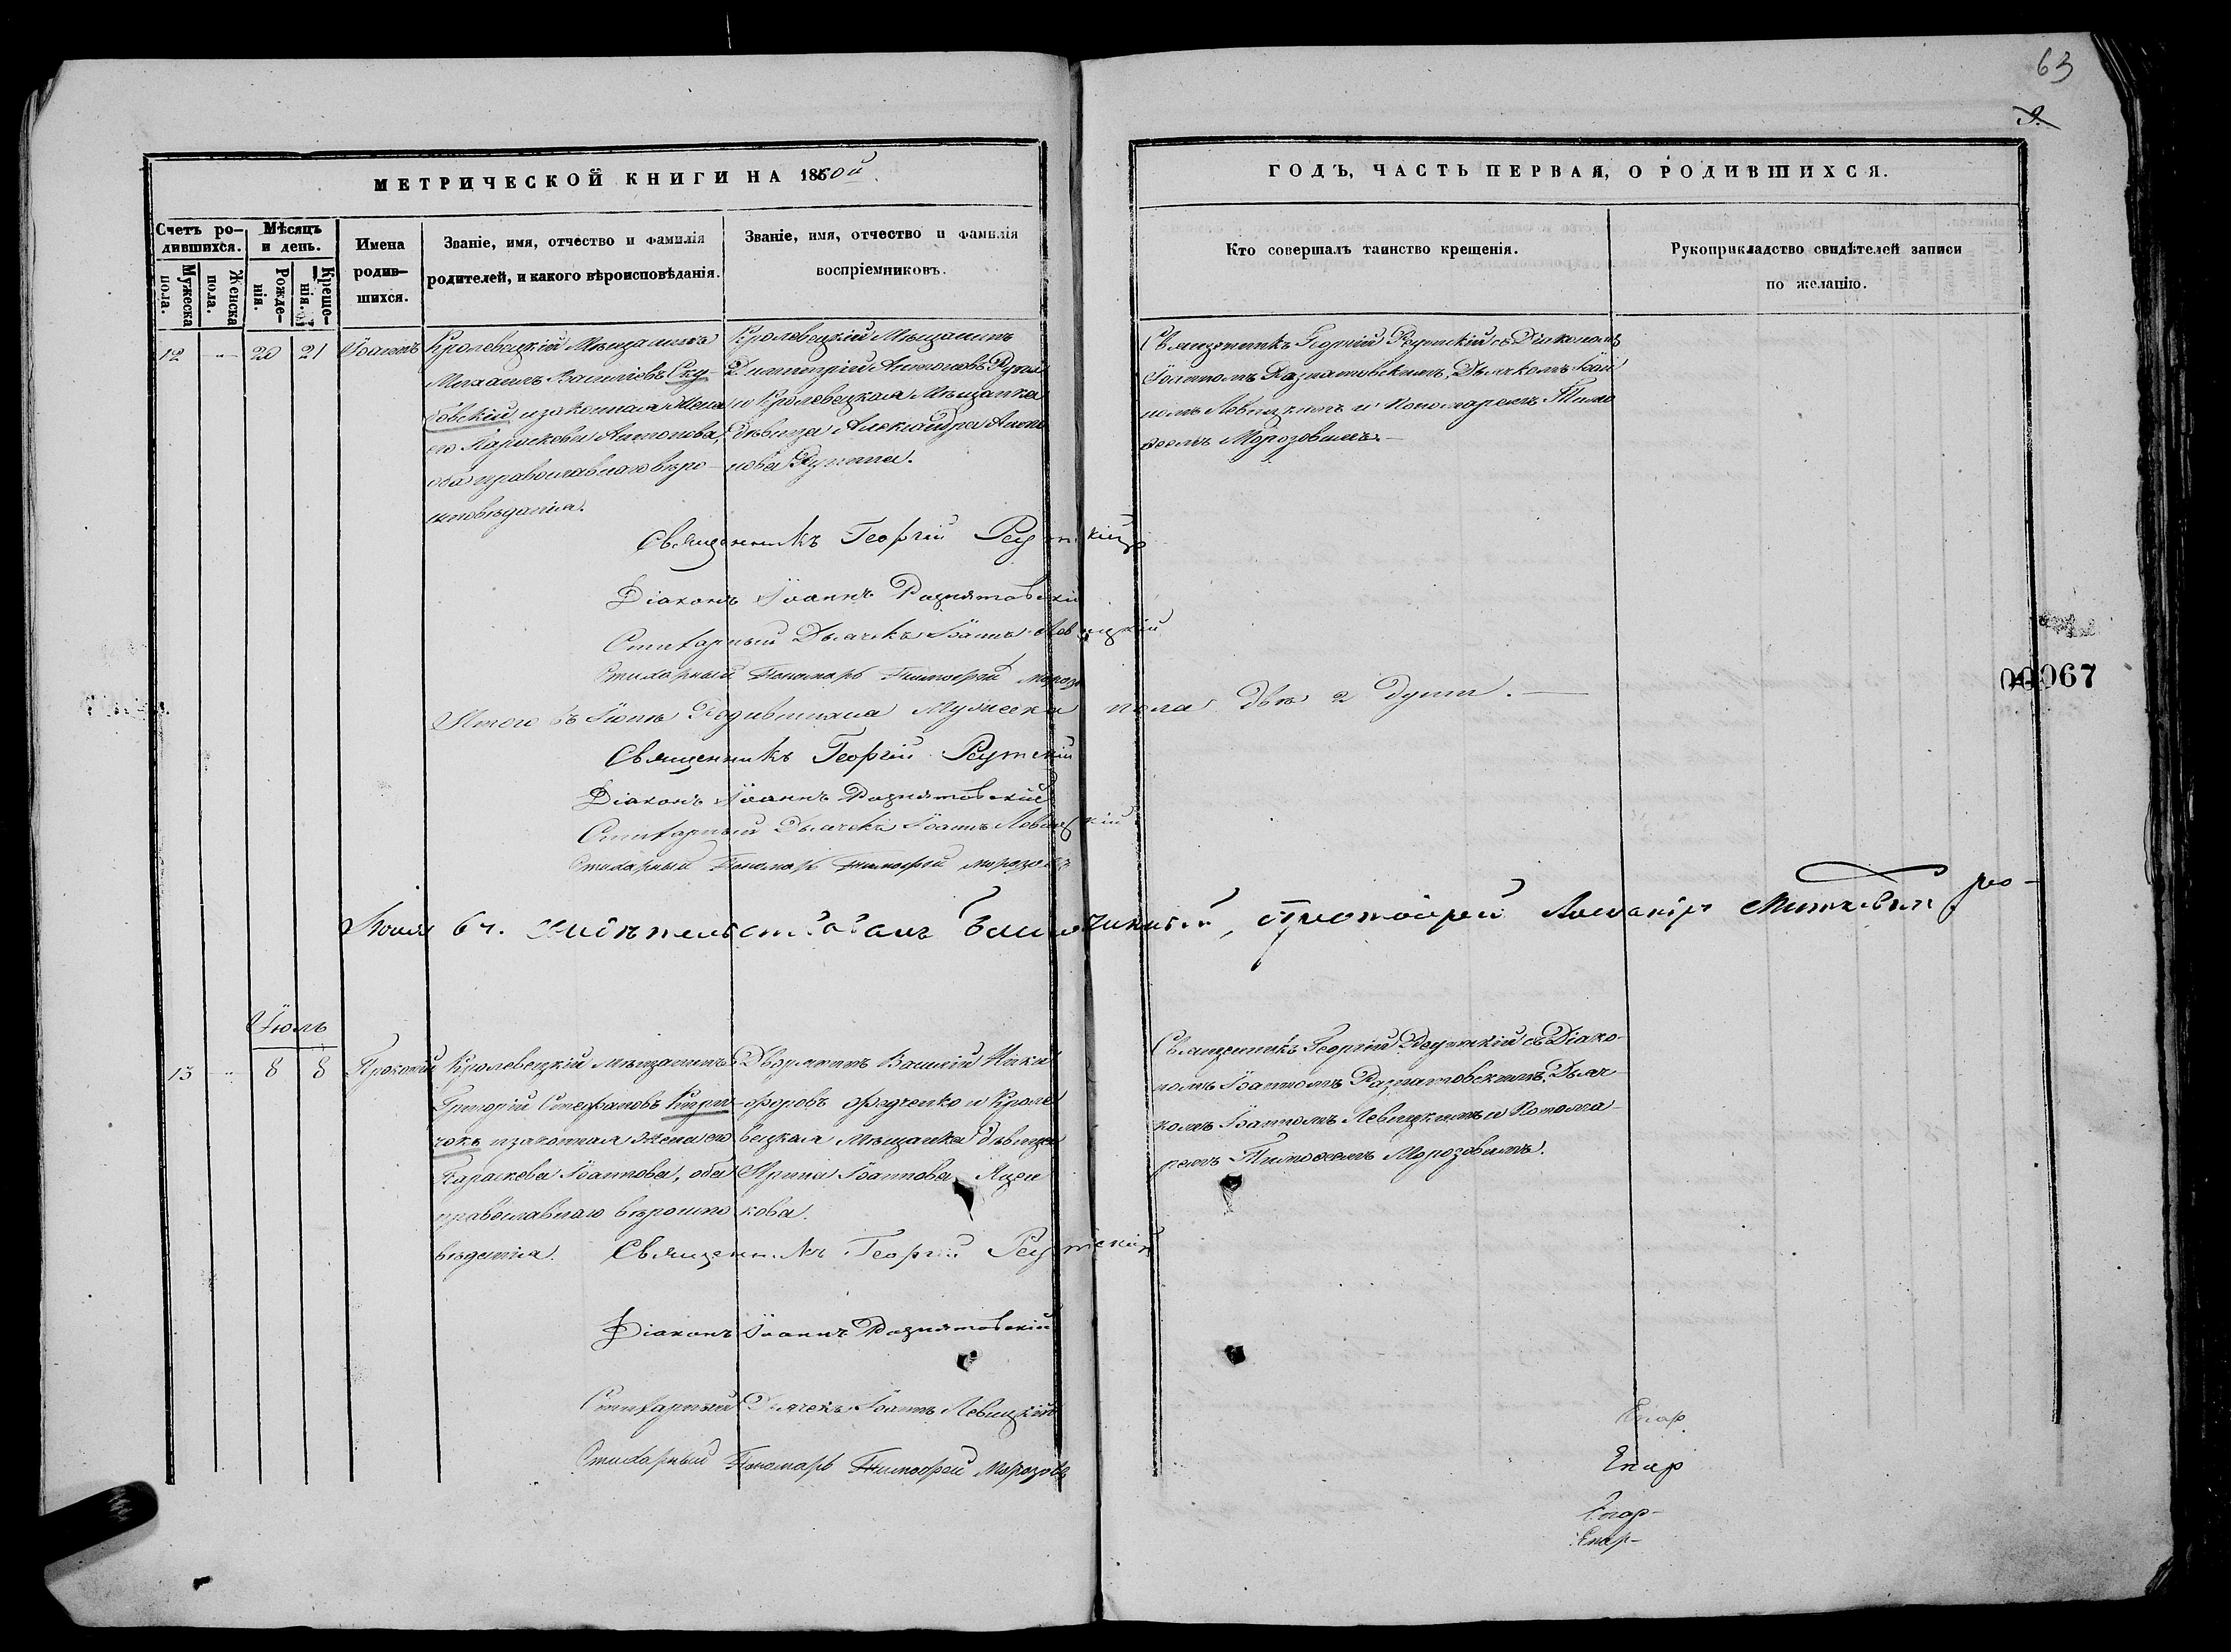 63
9.
МЕТРИЧЕСКОЙ КНИГИ НА 1850й
ГОДЪ, ЧАСТЬ ПЕРВАЯ, О РОДИВШИХСЯ.
Счетъ ро-
дившихся.
Мужеска
пола.
Женска
пола.
Мѣсяцъ
и день.
Рожде-
нія.
Креще-
нія.
Имена
родив-
шихся.
Званіе, имя, отчество и фамилія
родителей, и какого вѣроисповѣданія.
Званіе, имя, отчество и фамилія
воспріемниковъ.
Кто совершалъ таинство крещенія.
Рукоприкладство свидѣтелей записи
по желанію.
12 20 21 Іоаннъ
Кролевецкій Мѣщанинъ
Михаилъ Васильевъ
и законная Жена
его Параскева Антонова,
оба православнаго вѣро-
исповѣданія.
Кролевецкій Мѣщанинъ
Димитрій Антоновъ
и Кролевецкая Мѣщанка
дѣвица Александра
Священникъ Георгій Реутскій съ Діакономъ
Іоанномъ Рознатовскимъ, Дьячкомъ Іоан
номъ Левицкимъ и Пономаремъ Тимо
ѳеемъ Морозовымъ.
Священникъ Георгій Реутскій
Діаконъ Іоаннъ Рознатовскій
Стихарный Дьячекъ Іоаннъ Левицкій
Стихарный Пономарь Тимофей Морозо
Итого въ Іюнѣ Родившихся Мужеска пола двѣ 2 души.
Священникъ Георгій Реутскій
Діаконъ Іоаннъ Рознатовскій
Стихарный Дьячекъ Іоаннъ Левицкій
Стихарный Пономарь Тимофей Морозовъ
Іюля 6ч. свидѣтельствовалъ Благочинный, Протоіерей
Іюль
13 8 8 Прокопій
Кролевецкій мѣщанинъ
Григорій Стефановъ
и законная Жена его
Параскева Іоаннова, оба
православнаго вѣроиспо
вѣданія.
Дворянинъ Василій Ники
форовъ Федченко и Кроле
вецкая Мѣщанка дѣвица
Ирина Іоаннова Яцен
кова.
Священникъ Георгій Реутскій съ Діако-
номъ Іоанномъ Рознатовскимъ, Дьяч
комъ Іоанномъ Левицкимъ и Понома-
ремъ Тимоѳеемъ Морозовымъ.
Священникъ Георгій Реутскій
Діаконъ Іоаннъ Рознатовскій
Стихарный Дьячекъ Іоаннъ Левицкій
Стихарный Пономарь Тимофей Морозовъ
00067